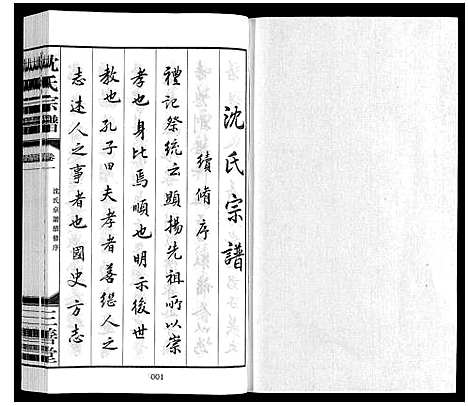 沈氏宗譜
續脩序
禮記祭統云顯揚先祖所以崇
孝也身比焉順也明示後世
教也孔子曰夫孝者善繼人之
志述人之事者也國史方志
沈氏宗譜
卷一
沈氏宗譜續脩序
三善堂
001